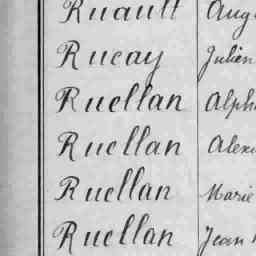 Ruault Aug
Rucay Julien
Ruellan Alph
Ruellan Alex
Ruellan Marie
Ruellan Jean